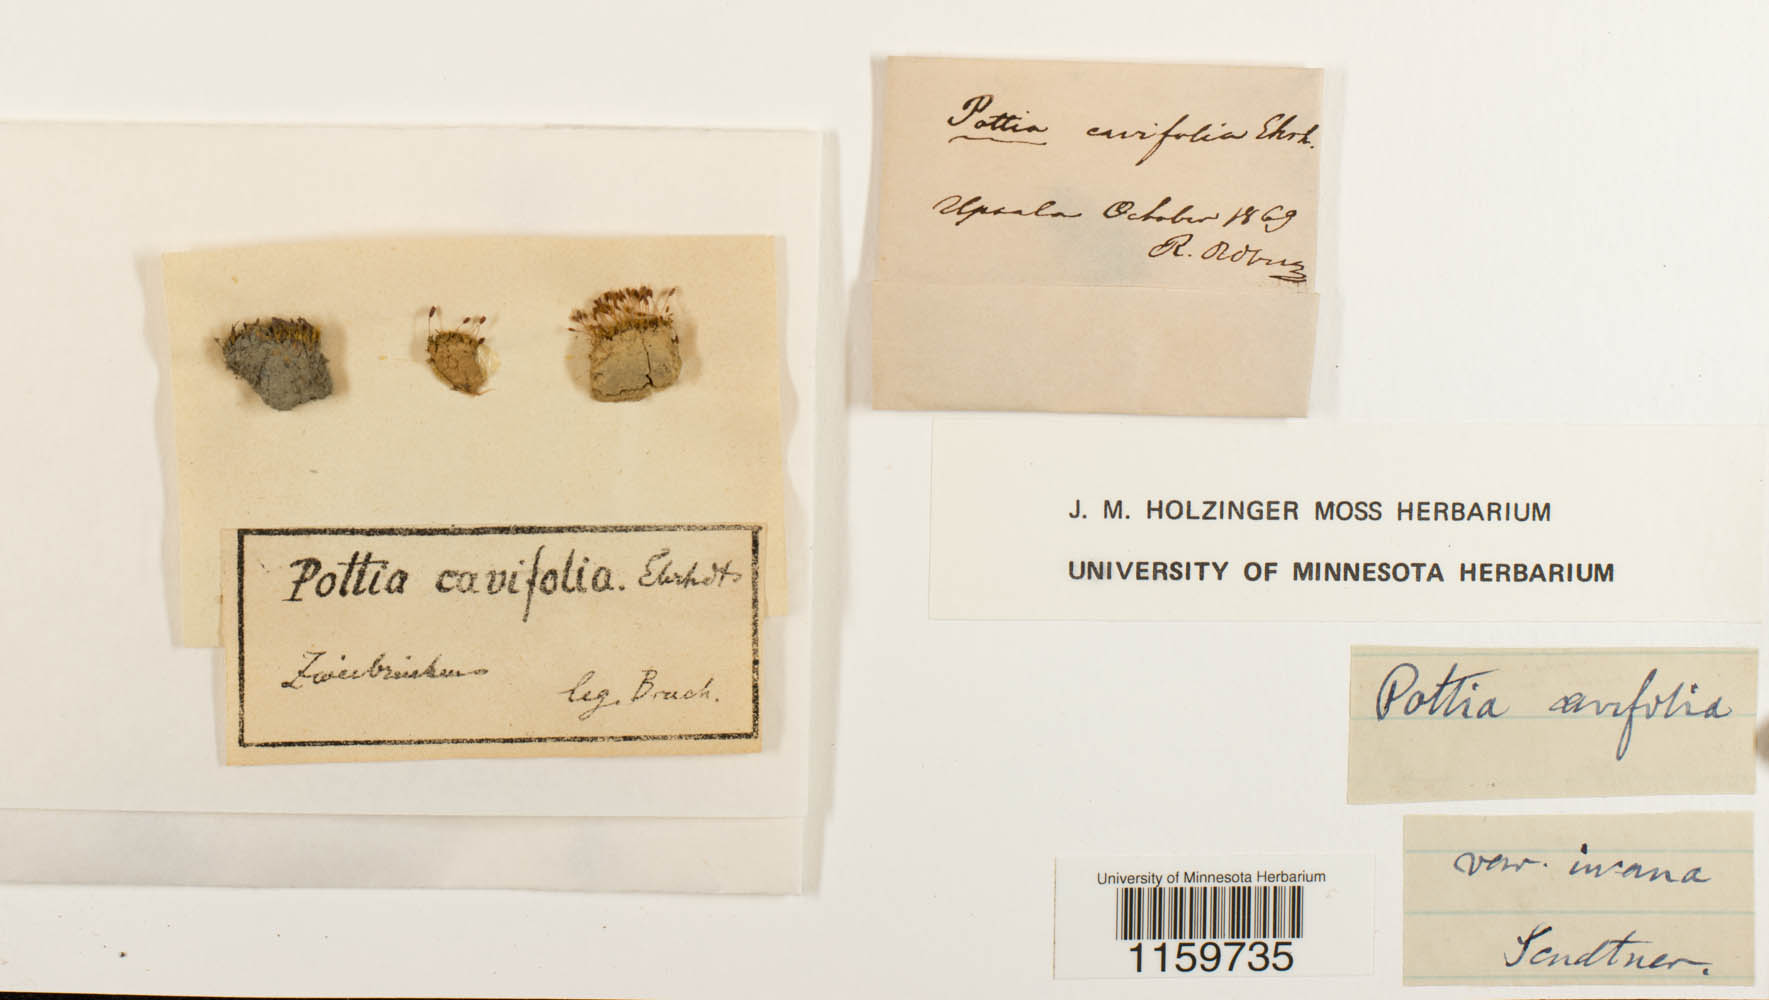 Pottia cavifolia Ehrh.
Upsala October 1869
R.
Pottia cavifolia. Ehrhdt
Zweibrücken
leg. Bruch.
J. M. HOLZINGER MOSS HERBARIUM
UNIVERSITY OF MINNESOTA HERBARIUM
Pottia cavifolia
var. incana
Sendtner.
University of Minnesota Herbarium
1159735